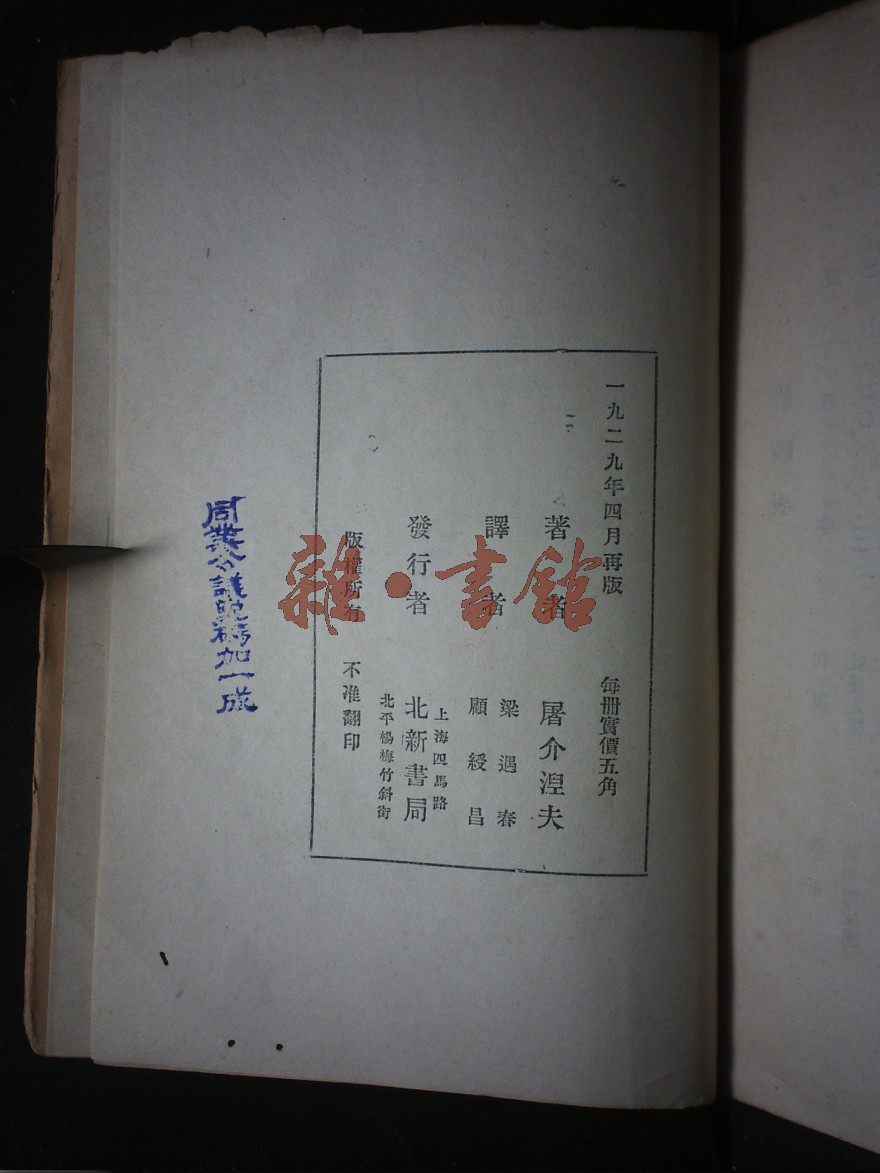 一九二九年四月再版 每冊實價五角
著者 屠介涅夫
譯者 梁遇春
顧綬昌
發行者 上海四馬路
北新書局
北平楊梅竹斜街
版權所有 不准翻印
同業公議實碼加一成
雜·書館